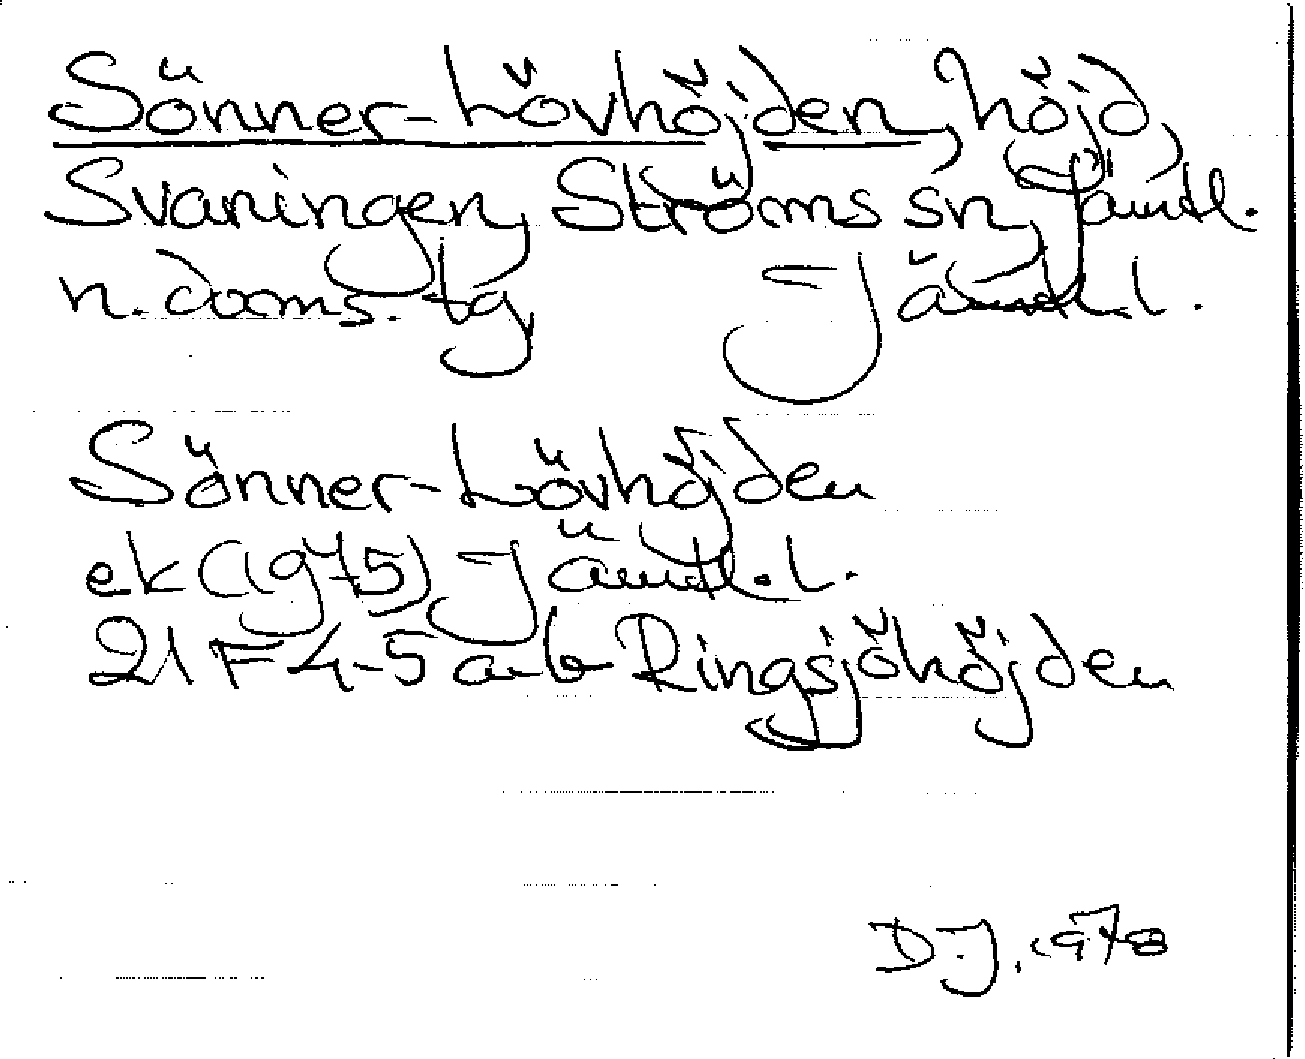 Sönner-Lövhöjden, höjd,
Svaningen, Ströms sn, Jämtl.
n. doms. tg, Jämtl. l.
Sönner-Lövhöjden
ek (1975) Jämtl. l.
21 F 4-5 a-b Ringsjöhöjden
D.J. 1978